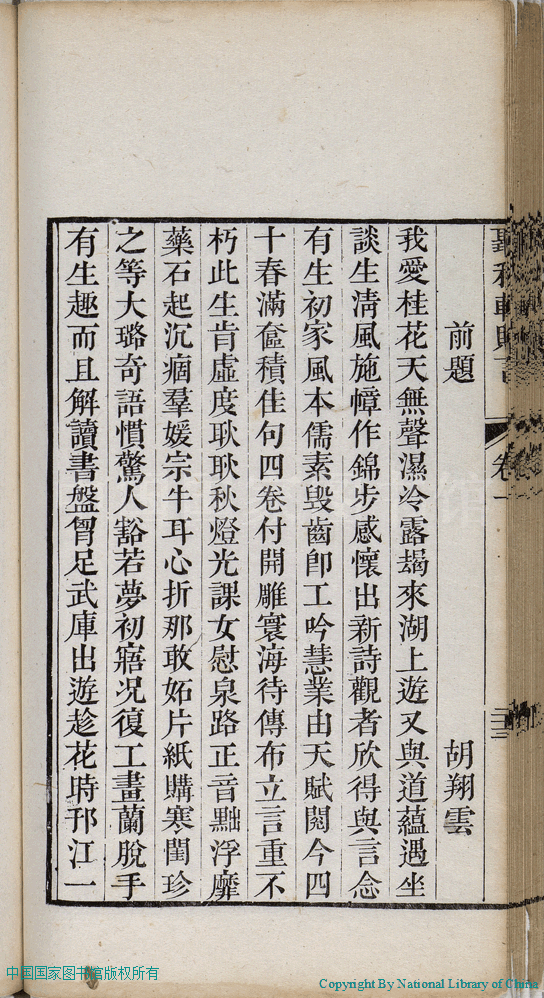 前題
胡翔雲
我愛桂花天無聲濕冷露朅來湖上遊又與道蘊遇坐
談生清風施幛作錦步感懷出新詩觀者欣得與言念
有生初家風本儒素毀齒卽工吟慧業由天賦閱今四
十春滿奩積佳句四卷付開雕寰海待傳布立言重不
朽此生肯虛度耿耿秋燈光課女慰泉路正音黜浮靡
藥石起沉痼羣媛宗牛耳心折那敢妬片紙購寒閨珍
之等大璐奇語慣驚人豁若夢初寤况復工畫蘭脫手
有生趣而且解讀書盤胷足武庫出遊趁花時邗江一
卷一
中国国家图书馆版权所有
Copyright By National Library of China